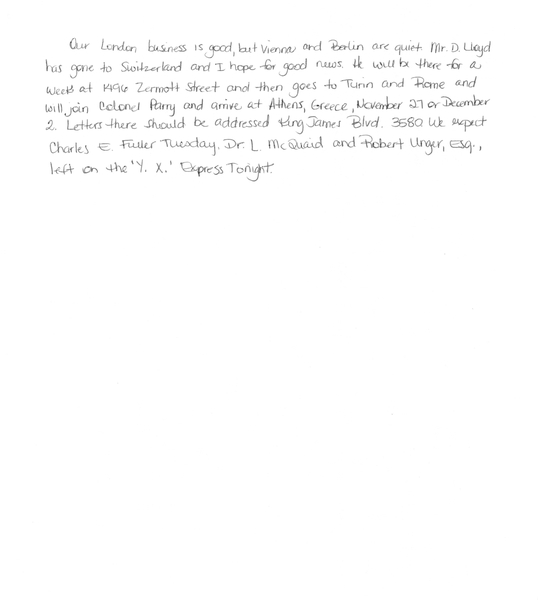 Our London business is good, but Vienna and Berlin are quiet. Mr. D. Lloyd
has gone to Switzerland and I hope for good news. He will be there for a
week at 1496 Zermott Street and then goes to Turin and Rome and
will join Colonel Parry and arrive at Athens, Greece, November 27 or December
2. Letters there should be addressed King James Blvd. 3580 We expect
Charles E. Fuller Tuesday. Dr. L. McQuaid and Robert Unger, Esq.,
left on the 'Y. X.' Express Tonight.